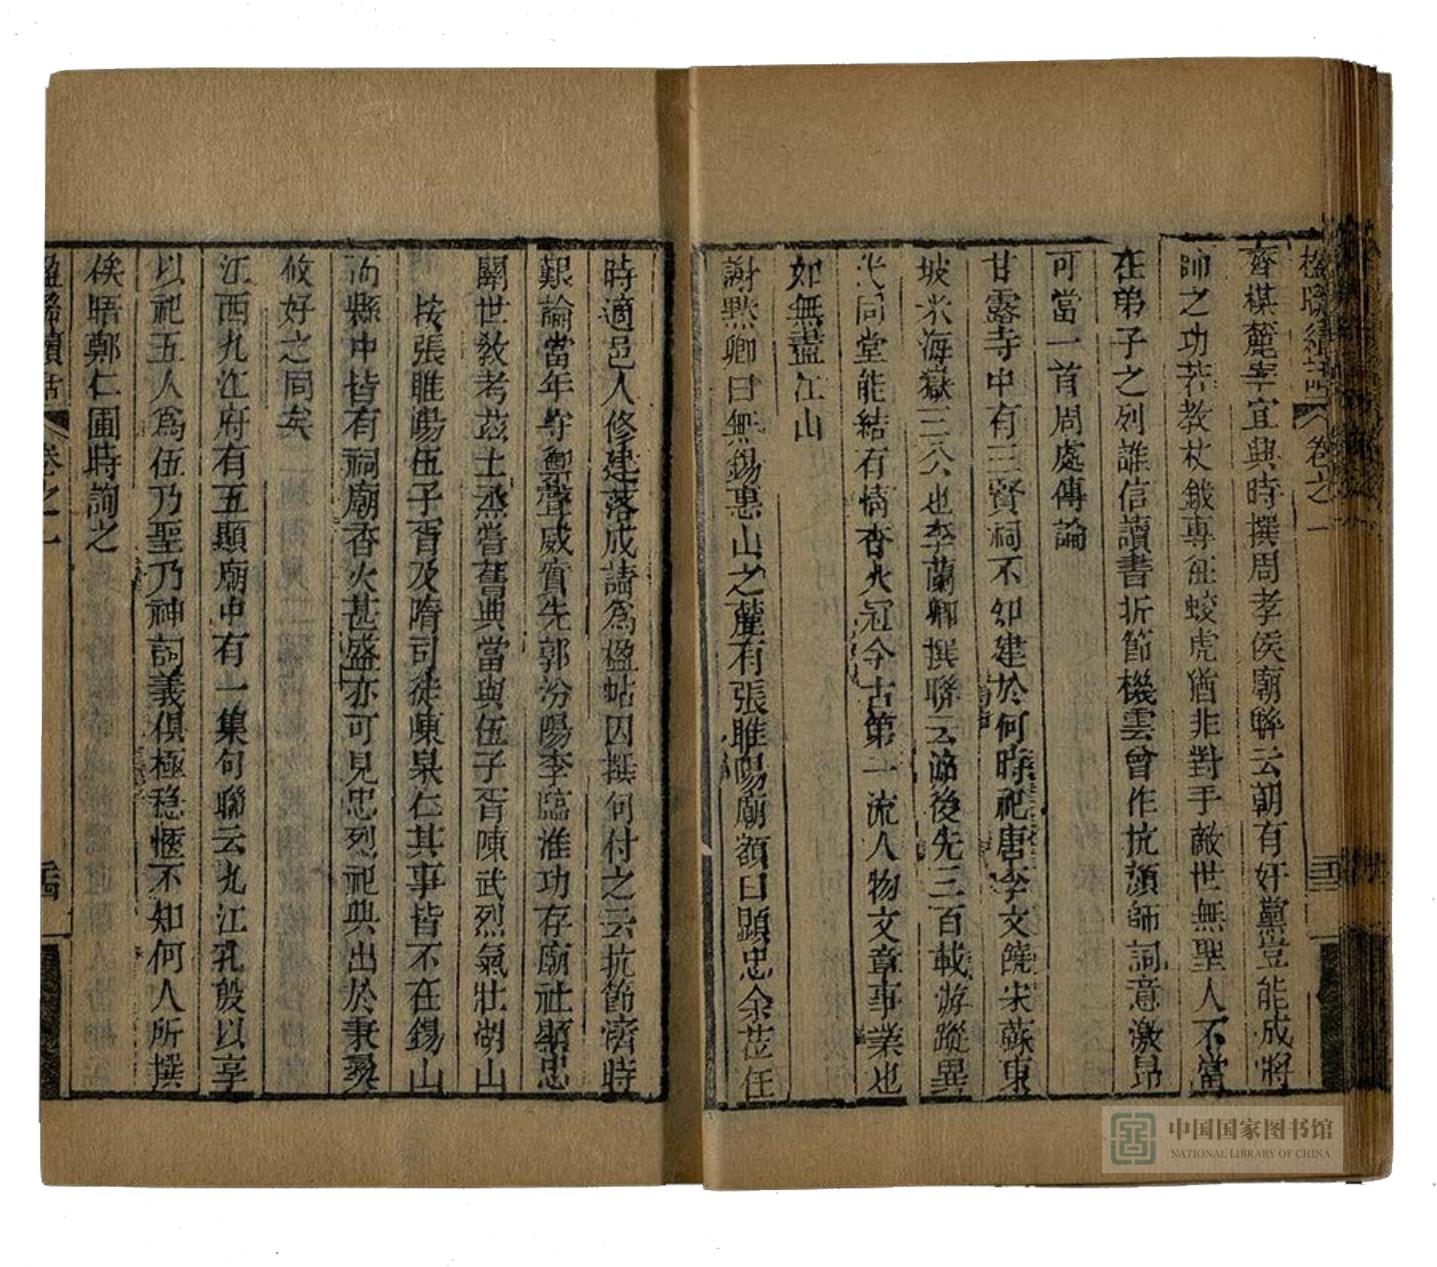 楹聯續話 卷之一
齊棋麓宰宜興時撰周孝侯廟聯云朝有奸黨豈能成將
帥之功若教杖鉞專征蛟虎猶非對手敵世無聖人不當
在弟子之列誰信讀書折節機雲曾作抗顏師詞意激昂
可當一首周處傳論
甘露寺中有三賢祠不知建於何時祀唐李文饒宋蘇東
坡米海嶽三公也李蘭卿撰聯云游後先三百載游蹤異
代同堂能結有情香火冠今古第一流人物文章事業也
如無盡江山
謝默卿曰無錫惠山之麓有張睢陽廟額曰顯忠余莅任
時適邑人修建落成請爲楹帖因撰句付之云抗節濟時
艱論當年專閫聲威實先郭汾陽李臨淮功存廟社顯忠
關世敎考茲土烝嘗舊典當與伍子胥陳武烈氣壯湖山
按張睢陽伍子胥及隋司徒陳杲仁其事皆不在錫山
而縣中皆有祠廟香火甚盛亦可見忠烈祀典出於秉彞
攸好之同矣
江西九江府有五顯廟中有一集句聯云九江孔殷以享
以祀五人爲伍乃聖乃神詞義俱極穩愜不知何人所撰
俟晤鄭仁圃時詢之
楹聯續話 卷之一